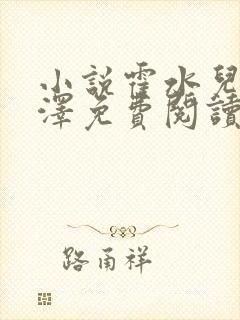 小說霍水兒
澤免費閱讀
路甬祥